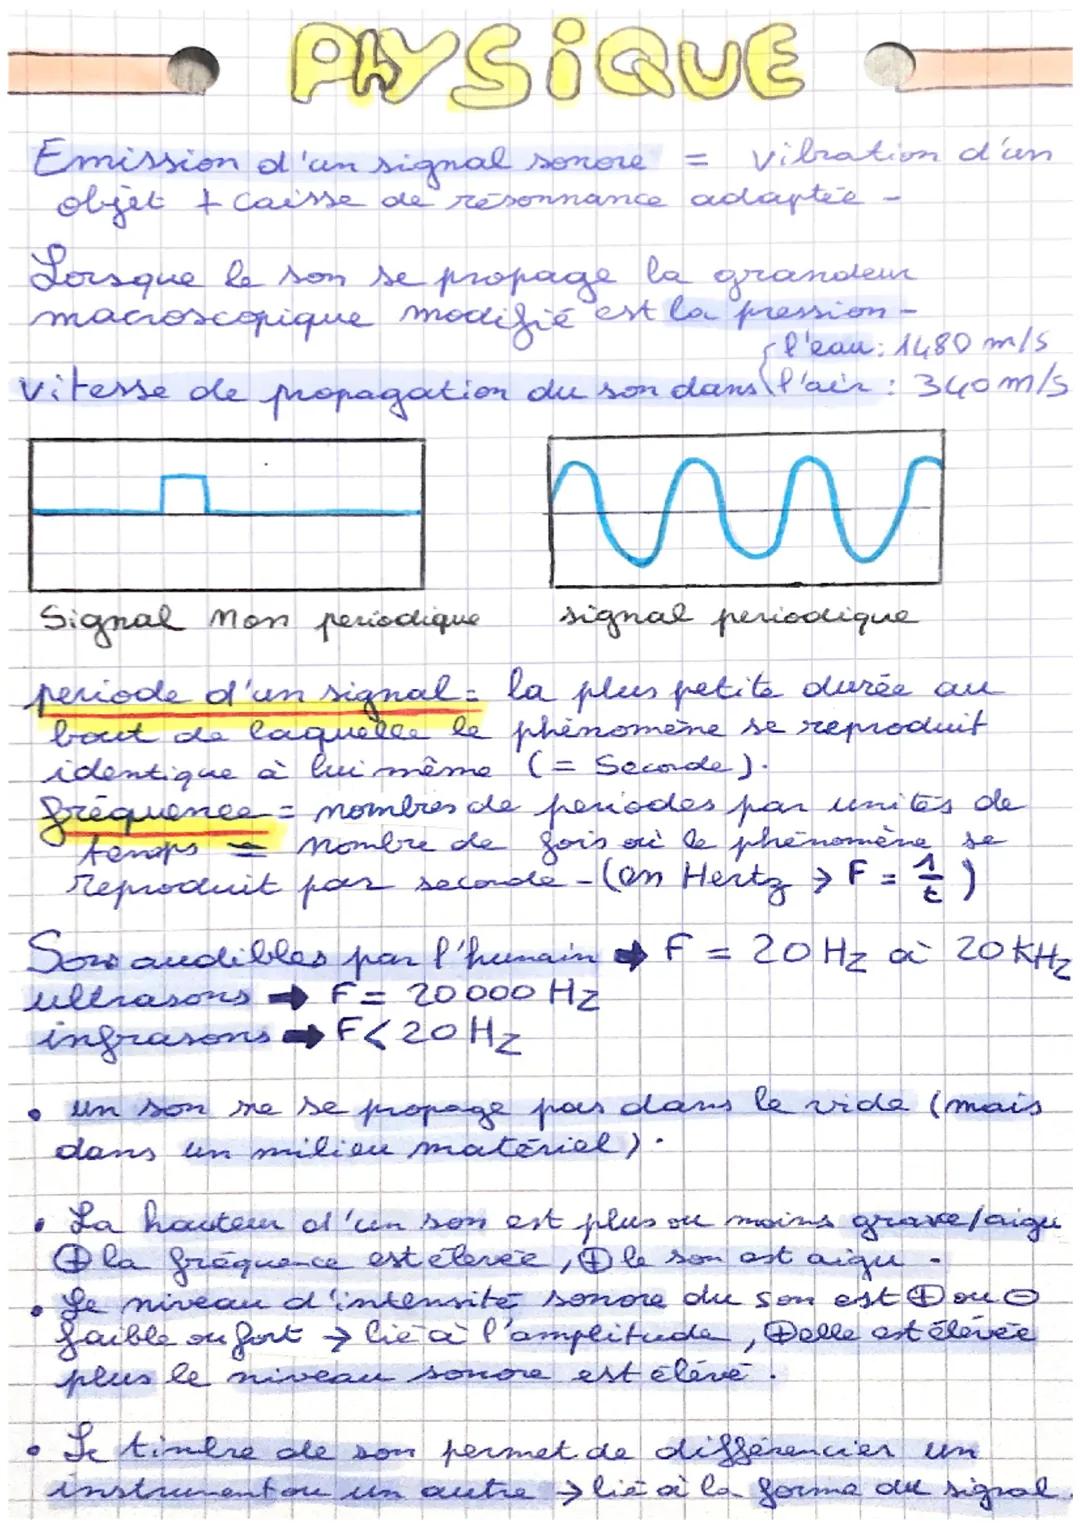 PHYSiQUE
Emission d'un signal sonore = vibration d'un
objet + caisse de résonnance adaptée -
Lorsque le son se propage la grandeur
macroscopique modifié est la pression -
l'eau : 1480 m/s
Vitesse de propagation du son dans l'air : 340 m/s
Signal non periodique
signal periodique
periode d'un signal = la plus petite durée au
bout de laquelle le phénomène se reproduit
identique à lui même (= Seconde).
fréquence = nombres de periodes par unités de
temps = nombre de fois où le phénomène se
reproduit par seconde - (en Hertz → F = 1/t)
Sons audibles par l'humain → F = 20 Hz à 20 KHz
ultrasons → F = 20 000 Hz
infrasons → F < 20 Hz
• un son ne se propage pas dans le vide (mais
dans un milieu matériel).
• La hauteur d'un son est plus ou moins grave/aigu
⊕ la fréquence est élevée, ⊕ le son est aigu.
• Le niveau d'intensité sonore du son est ⊕ ou ⊖
faible ou fort → lié à l'amplitude, ⊕ elle est élevée
plus le niveau sonore est élevé.
• Le timbre de son permet de différencier un
instrument ou un autre → lié à la forme du signal.